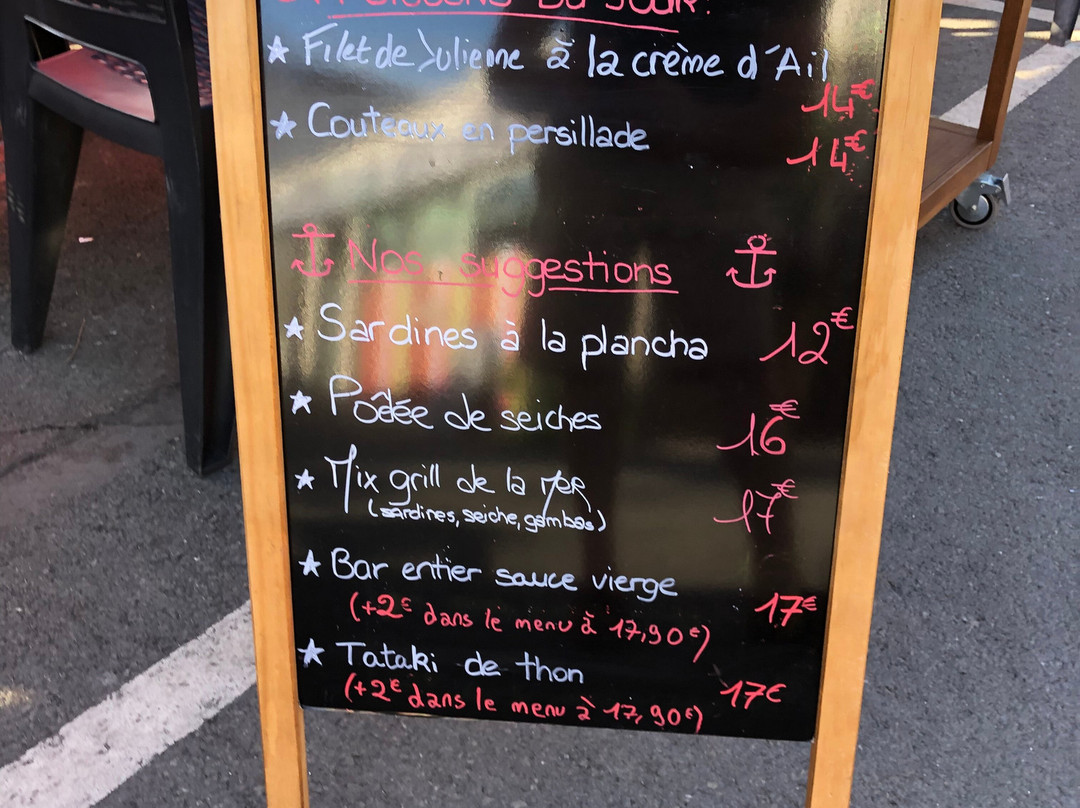 du Jour.
★ Filet de Julienne à la crème d'Ail
14€
★ Couteaux en persillade
14€
Nos suggestions
★ Sardines à la plancha 12€
★ Poêlée de seiches 16€
★ Mix grill de la Mer 17€
(sardines, seiche, gambas)
★ Bar entier sauce vierge 17€
(+2€ dans le menu à 17,90€)
★ Tataki de thon 17€
(+2€ dans le menu à 17,90€)